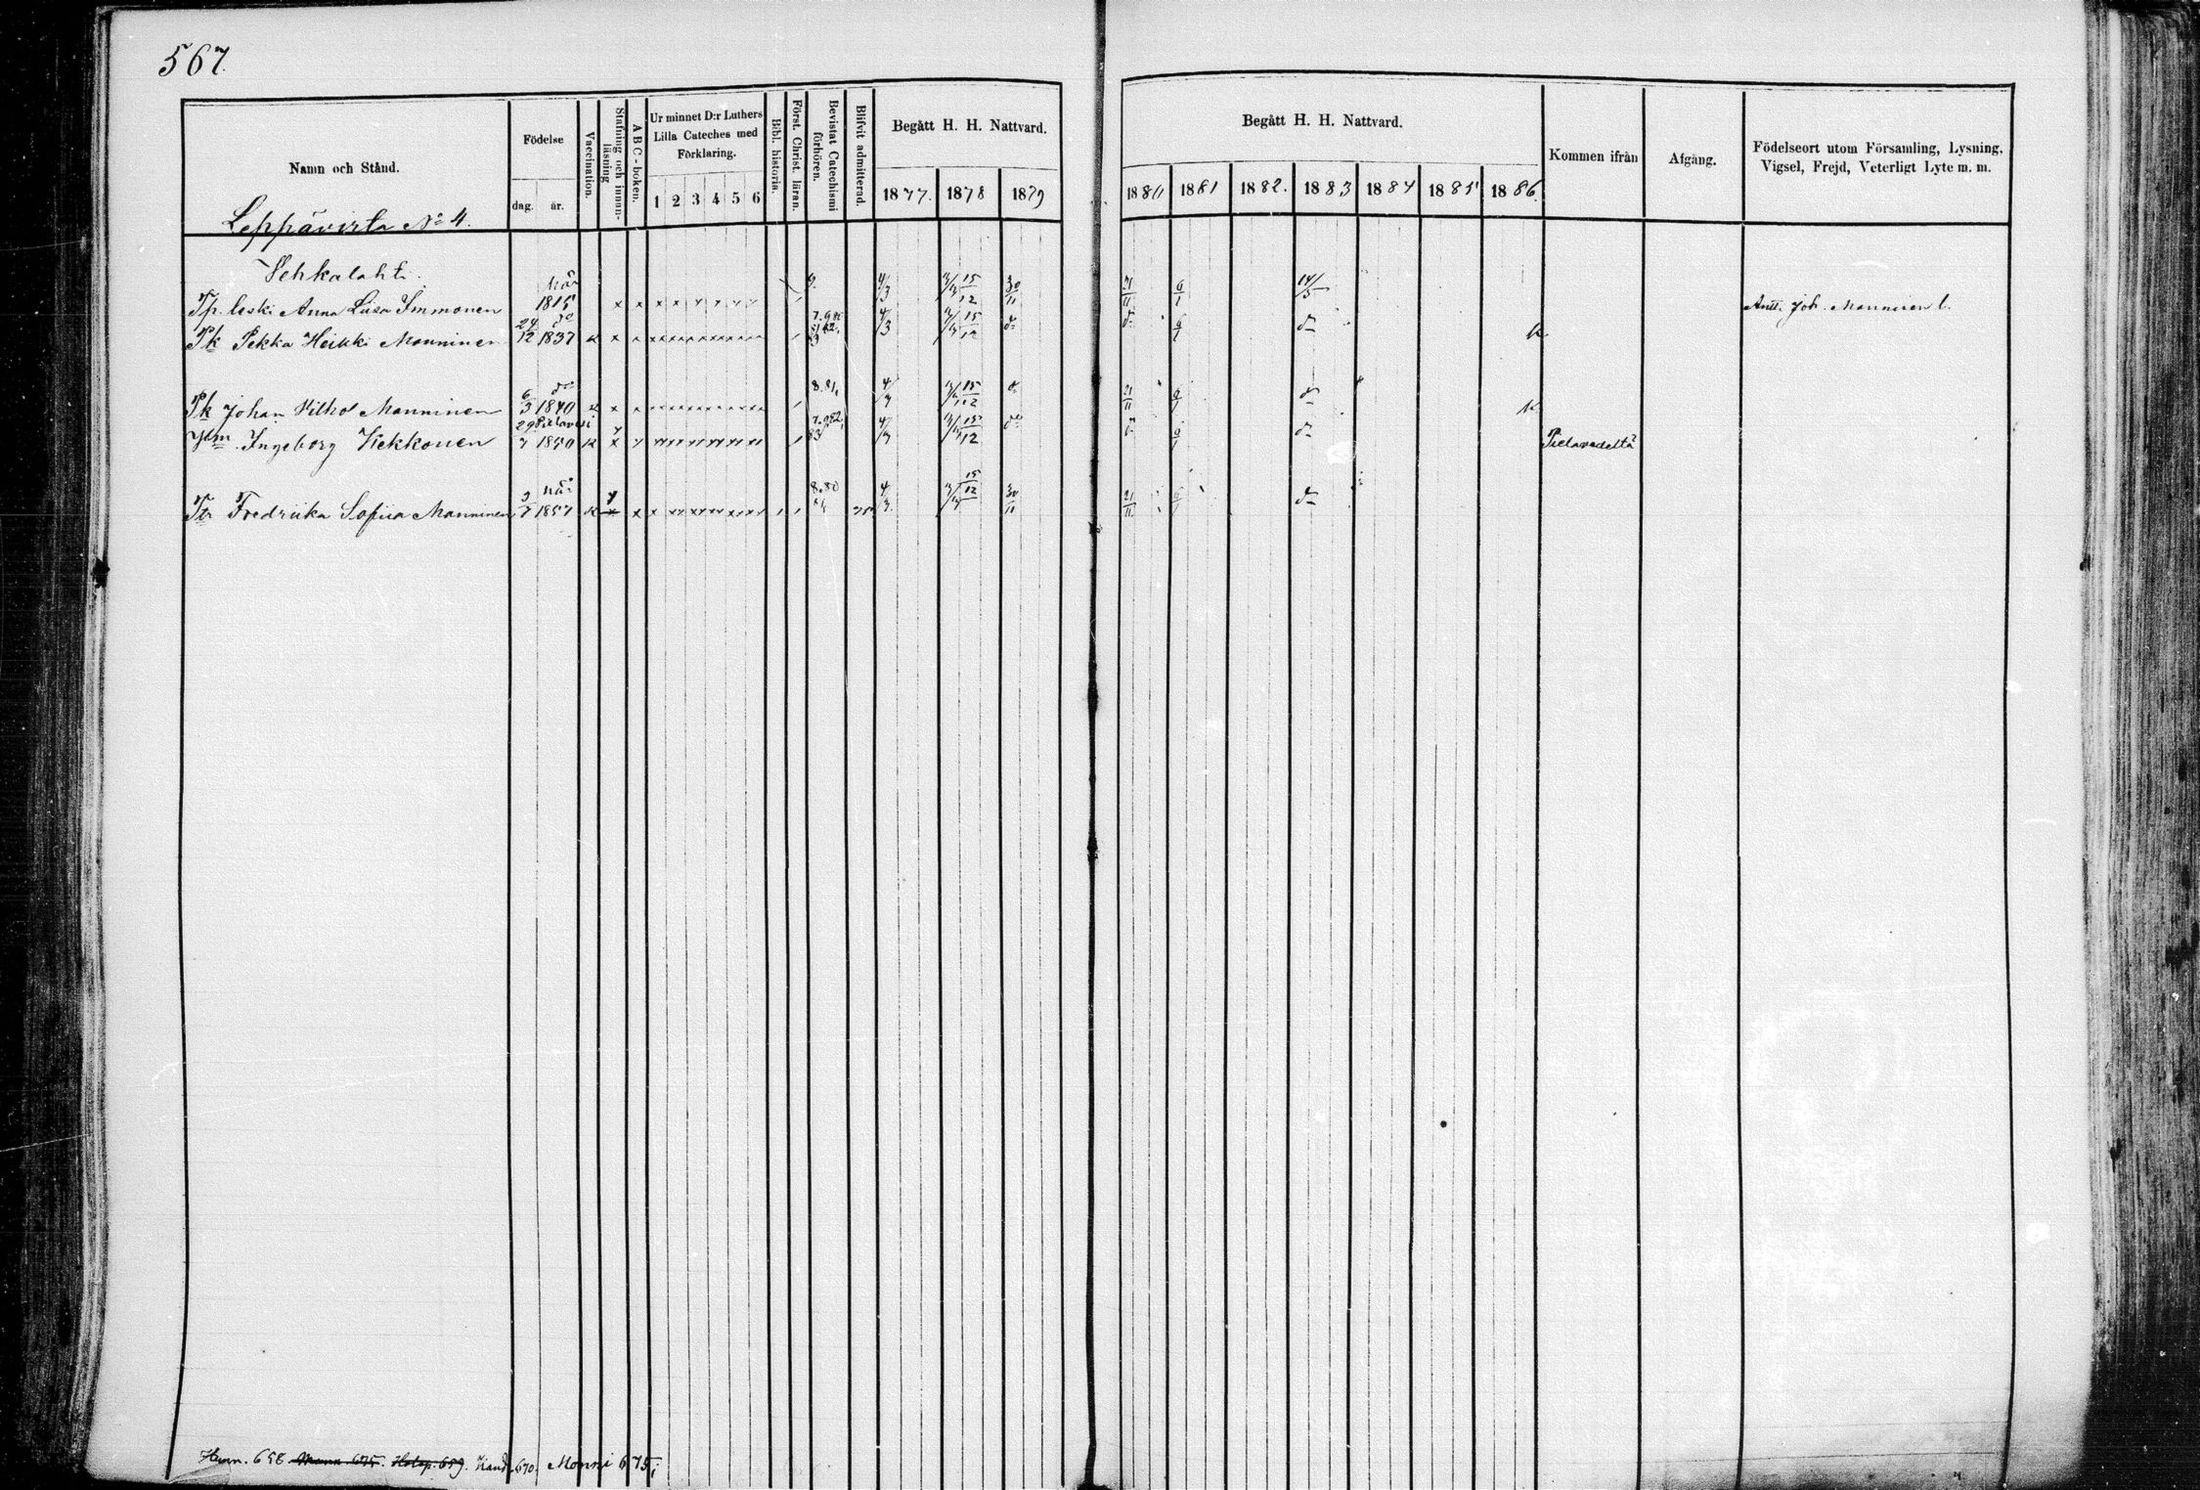 567.
Namn och Stånd.
Födelse
dag. år.
Vaccination.
Stafning och innan-läsning
ABC-boken.
Ur minnet D:r Luthers Lilla Cateches med Förklaring.
1 2 3 4 5 6
Bibl. historia.
Först. Christ. läran.
Bevistat Catechismi förhören.
Blifvit admitterad.
Begått H. H. Nattvard.
1877. 1878 1879
Begått H. H. Nattvard.
1880 1881 1882. 1883 1884 1885 1886.
Kommen ifrån
Afgång.
Födelseort utom Församling, Lysning, Vigsel, Frejd, Veterligt Lyte m. m.
Leppävirta No 4.
Vehkalahti.
Tp. leski Anna Liisa Immonen 1815 4/3 15/12 30/11 21/11 6/1 14/5 Antti Joh. Manninen l.
Pk Pekka Heikki Manninen 24/12 1837 4/3 15/12 do 6/1 do
Pk Johan Vilho Manninen 6/3 1840 8.81, 4/3 15/12 21/11 6/1 do
Ylm. Ingeborg Kekkonen 29/7 Pielavesi 1850 4/3 15/12 do 6/1 do Pielavedeltä
Tr Fredriika Sofiia Manninen 3/7 1857 8.80 4/3 15/12 30/11 21/11 6/1 do
Hinn. 658 Mann. 675. Holop. 659. Kand. 670. Monni 675;